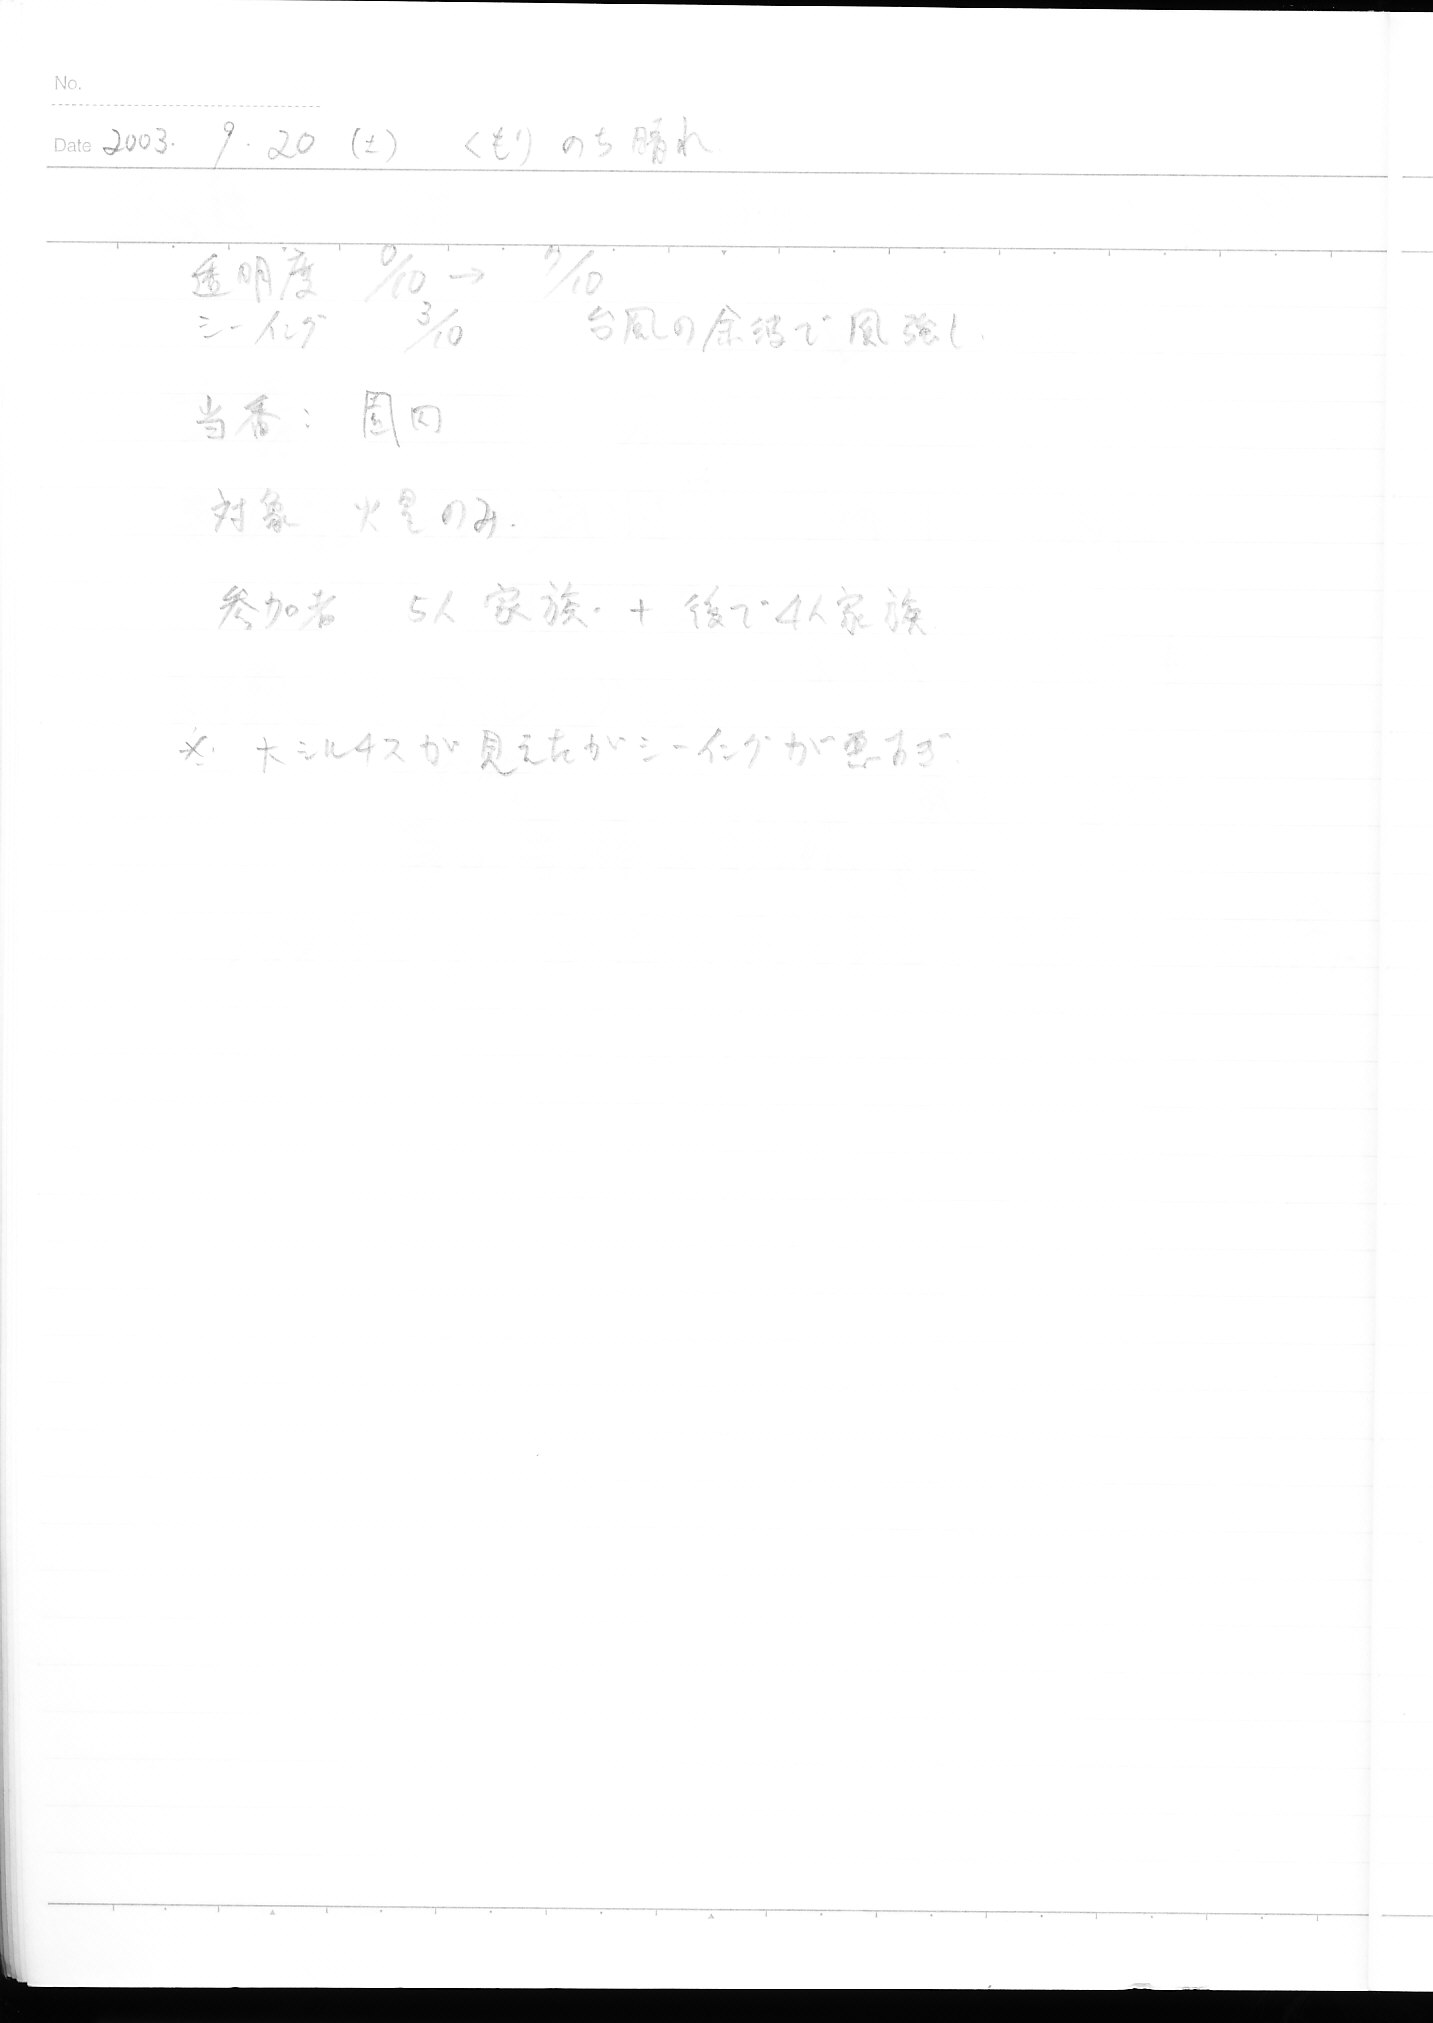 No.
Date 2003. 9. 20 (土) くもりのち晴れ
透明度 0/10 → 7/10
シーイング 3/10 台風の余波で風強し.
当番: 園田
対象 火星のみ.
参加者 5人家族. + 後で4人家族
※. 大シルチスが見えたがシーイングが